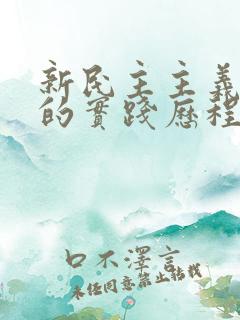 新民主主義
的實踐歷程
口不澤言
未经同意禁止转载